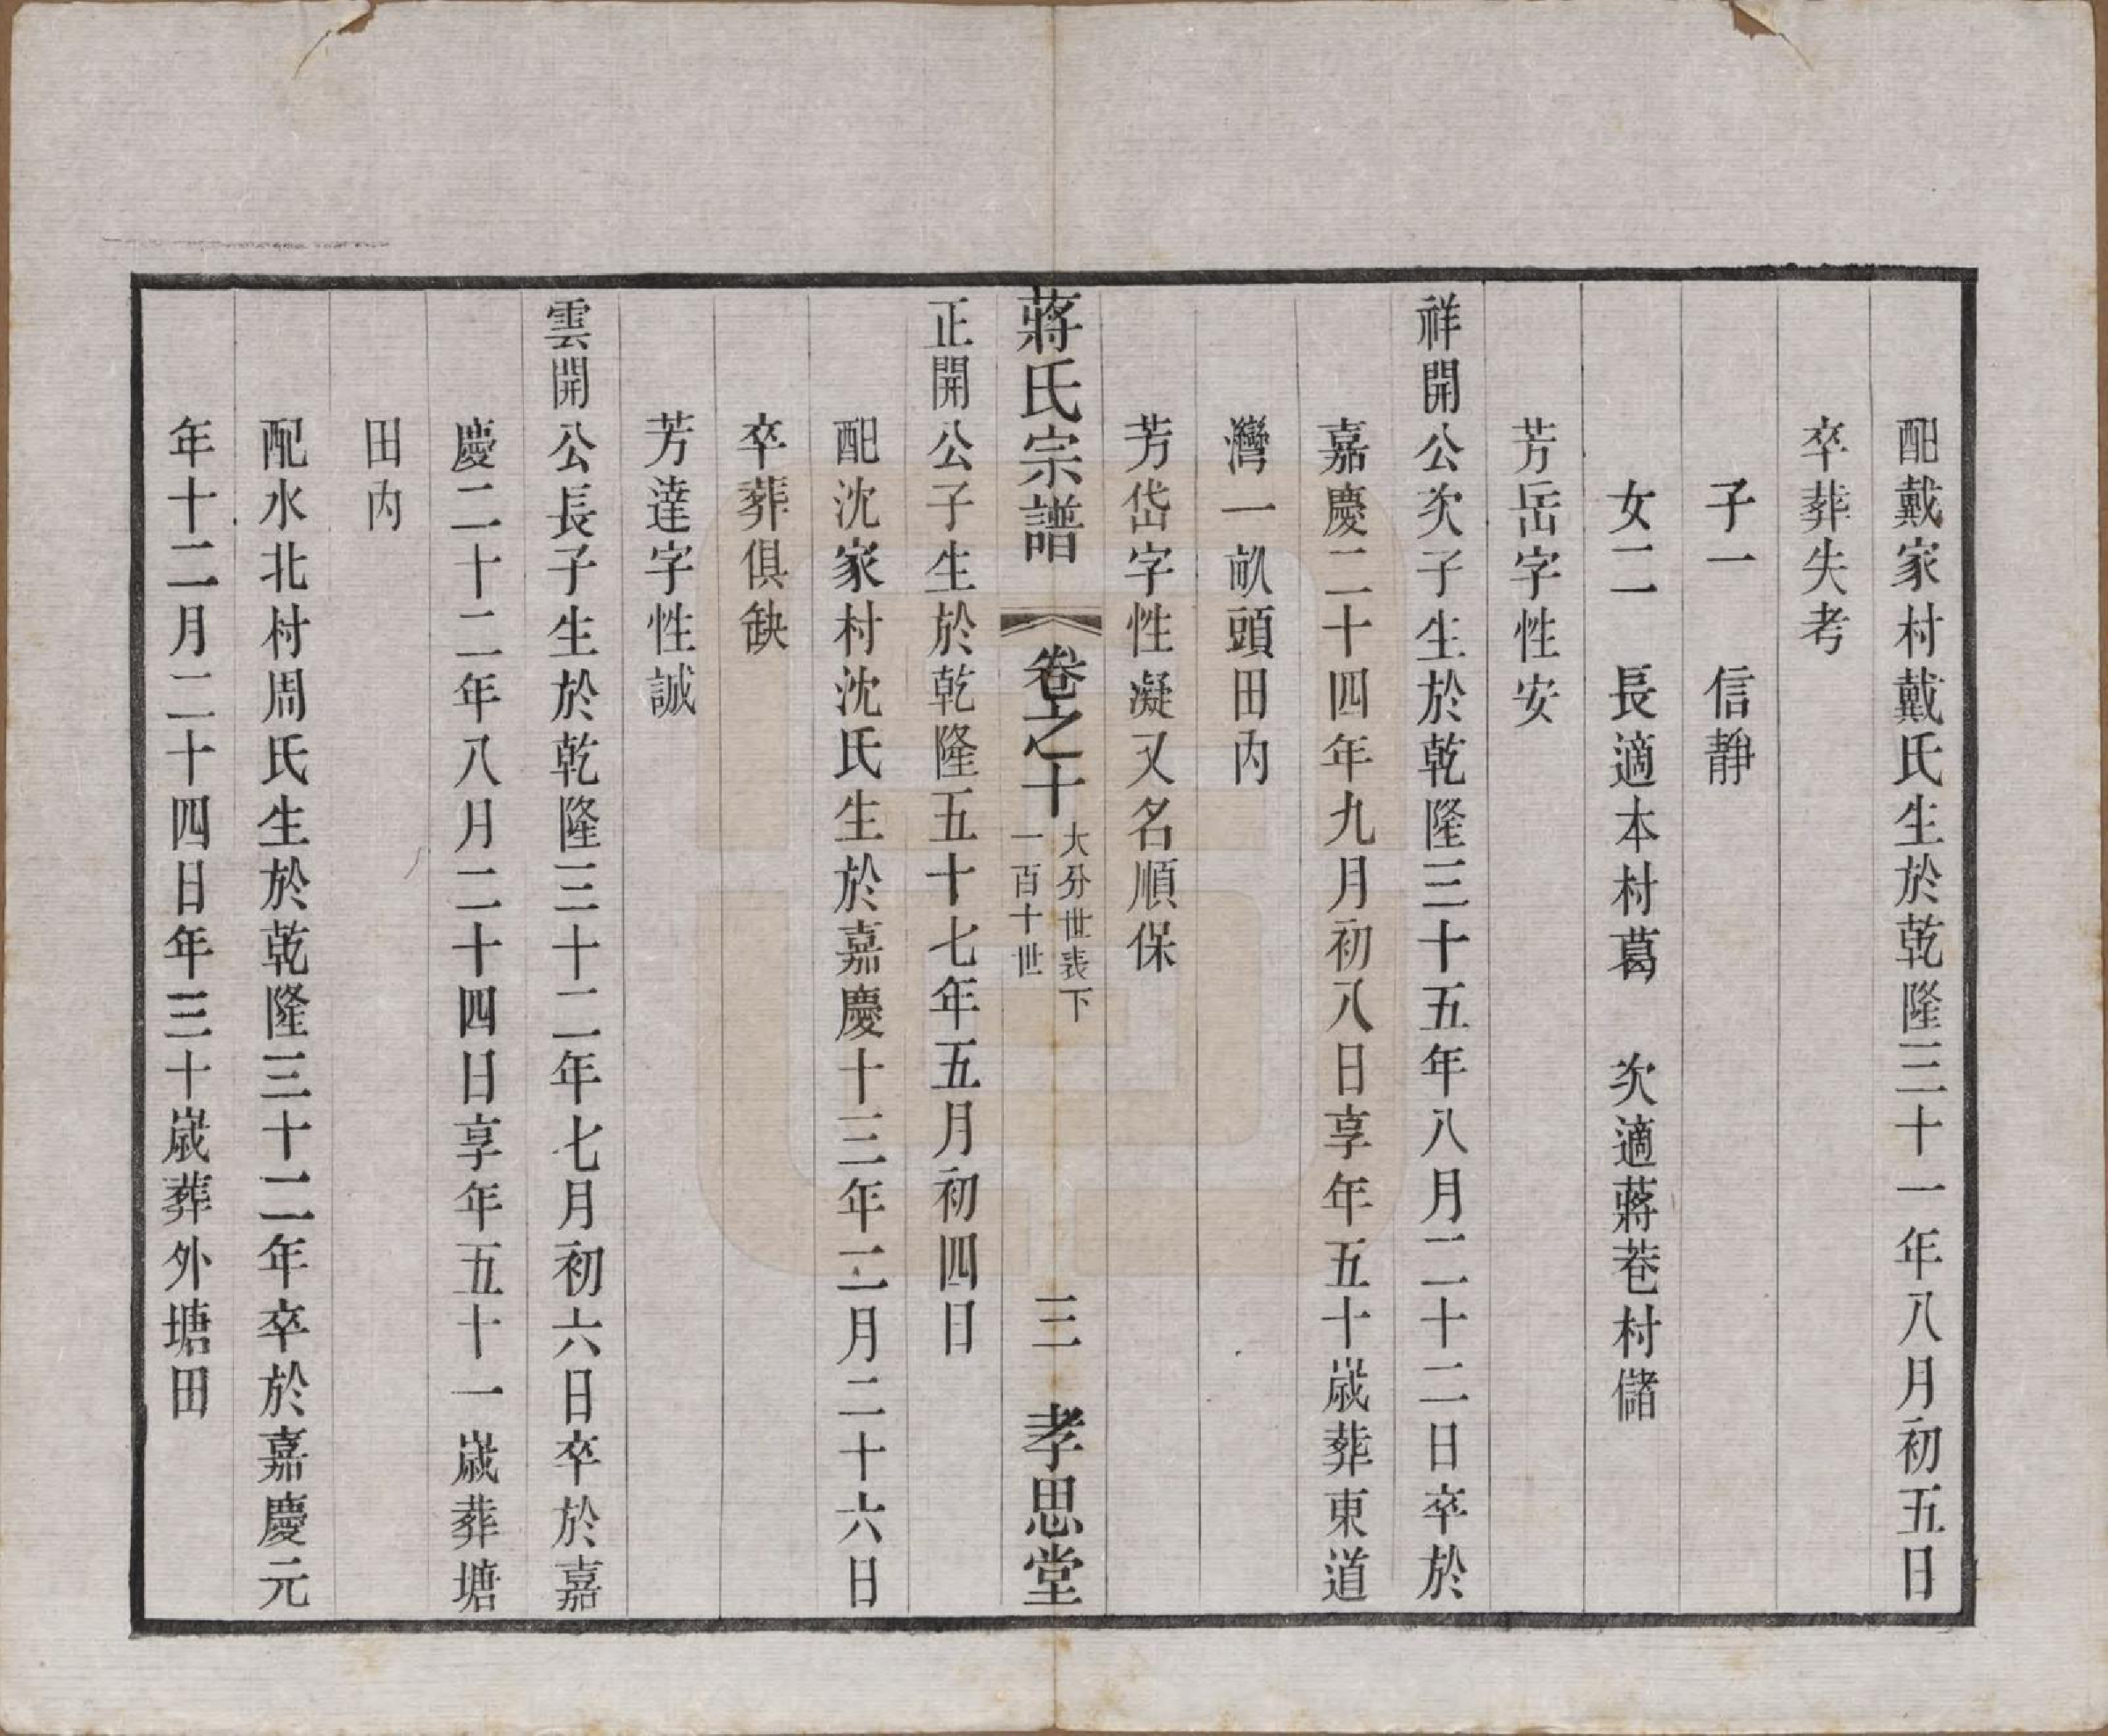 配戴家村戴氏生於乾隆三十一年八月初五日
卒葬失考
子一　信靜
女二　長適本村葛　次適蔣巷村儲
芳岳字性安
祥開公次子生於乾隆三十五年八月二十二日卒於
嘉慶二十四年九月初八日享年五十歲葬東道
灣一畝頭田內
芳岱字性凝又名順保
蔣氏宗譜　卷之十　大分世表下　一百十世　三　孝思堂
正開公子生於乾隆五十七年五月初四日
配沈家村沈氏生於嘉慶十三年二月二十六日
卒葬俱缺
芳達字性誠
雲開公長子生於乾隆三十二年七月初六日卒於嘉
慶二十二年八月二十四日享年五十一歲葬塘
田內
配水北村周氏生於乾隆三十二年卒於嘉慶元
年十二月二十四日年三十歲葬外塘田